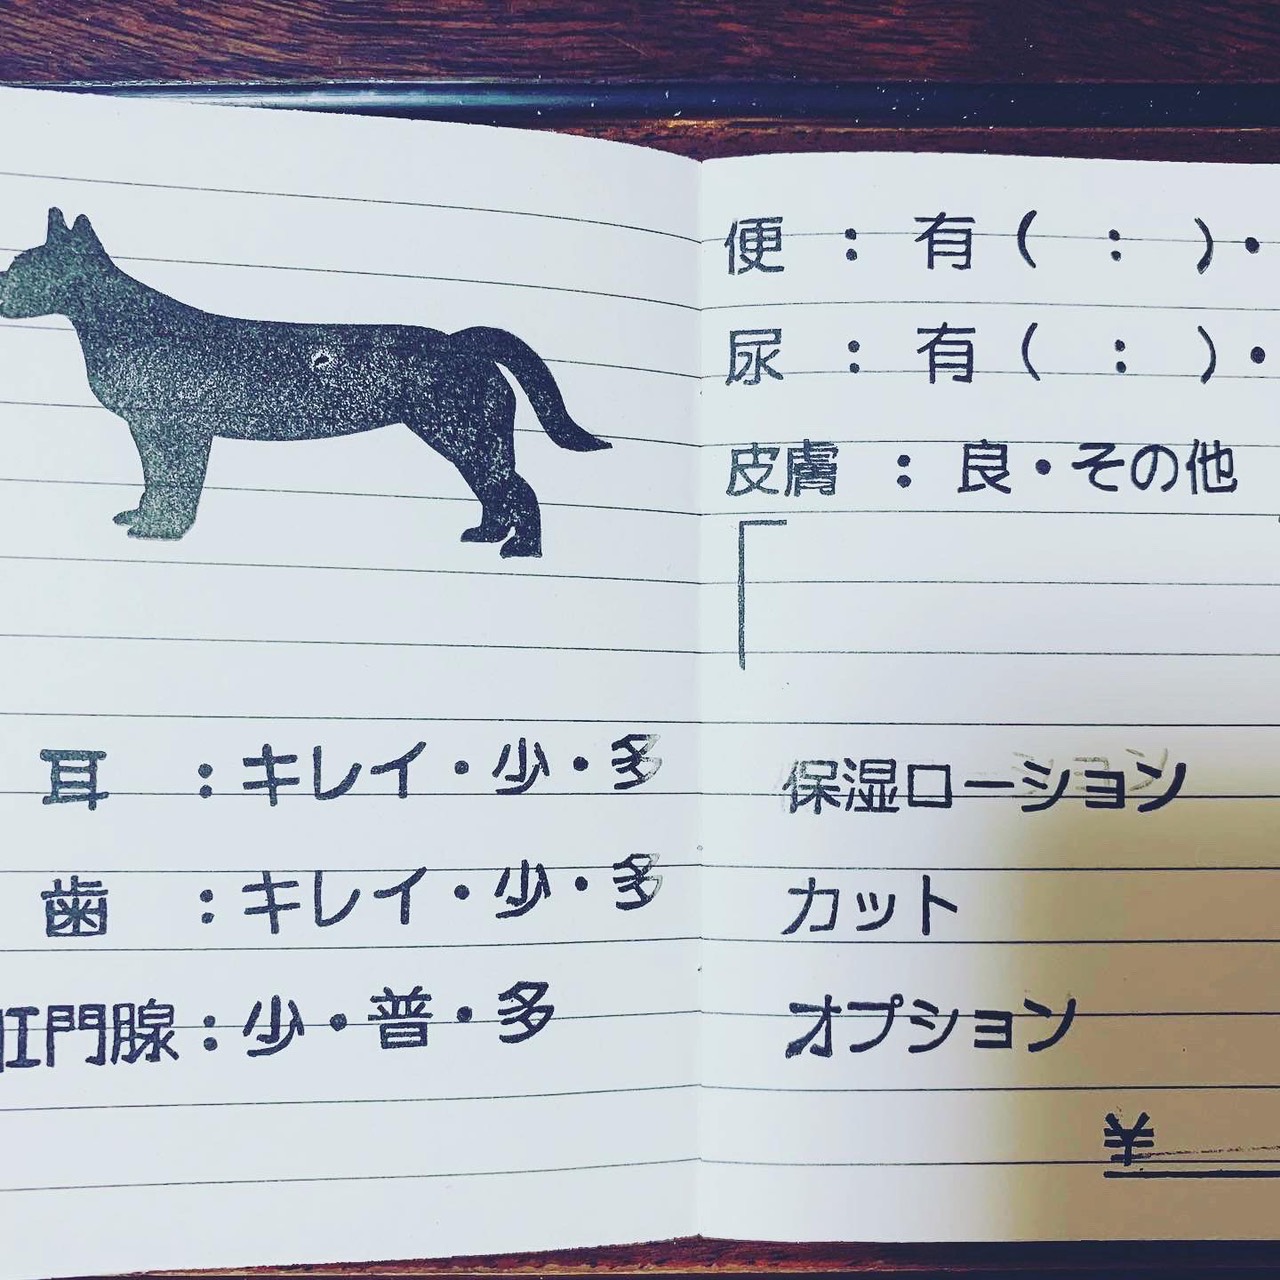 耳 : キレイ・少・多
歯 : キレイ・少・多
肛門腺 : 少・普・多
便 : 有 ( : )・
尿 : 有 ( : )・
皮膚 : 良・その他
保湿ローション
カット
オプション
¥